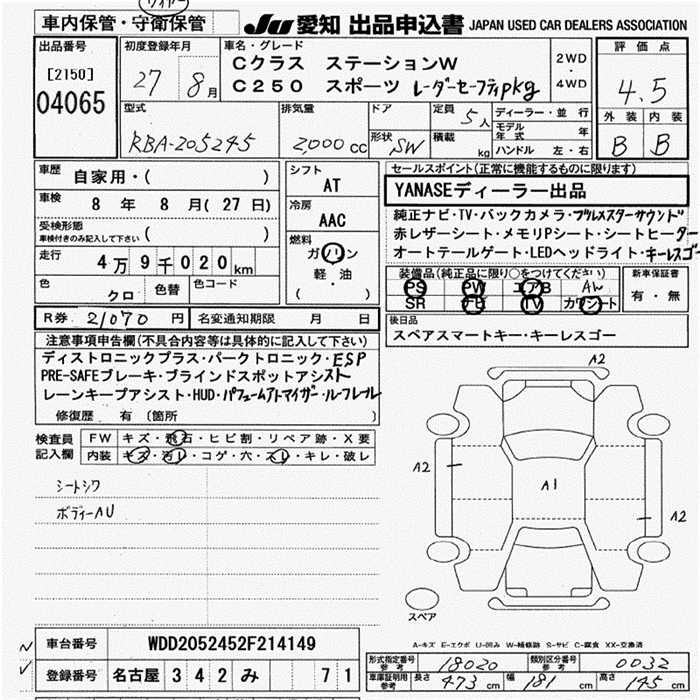 車内保管・守衛保管
JU 愛知 出品申込書 JAPAN USED CAR DEALERS ASSOCIATION
出品番号
[2150]
04065
初度登録年月
27 8月
車名・グレード
Cクラス ステーションW
C250 スポーツ レーダーセーフティpkg
2WD・4WD
評価点
4.5
外装 内装
B B
型式
RBA-205245
排気量
2,000 cc
ドア
形状 SW
定員 5人
積載 kg
ディーラー・並行
モデル年式 年
ハンドル 左・右
車歴
自家用・( )
車検
8年 8月(27日)
受検形態
車検付きのみ記入して下さい ( )
走行
4万9千020km
色 クロ 色替 色コード
シフト
AT
冷房
AAC
燃料
ガソリン
軽・油
( )
R券 21070 円 名変通知期限 月 日
セールスポイント(正常に機能するものに限ります)
YANASEディーラー出品
純正ナビ・TV・バックカメラ・ブルメスターサウンド
赤レザーシート・メモリPシート・シートヒーター
オートテールゲート・LEDヘッドライト・キーレスゴー
装備品(純正品に限り○をつけてください)
PS PW エアB AW
SR ナビ TV カワシート
新車保証書
有・無
後日品
スペアスマートキー・キーレスゴー
注意事項申告欄(不具合内容等は具体的に記入して下さい)
ディストロニックプラス・パークトロニック・ESP
PRE-SAFEブレーキ・ブラインドスポットアシスト
レーンキープアシスト・HUD・パフュームアトマイザー・ルーフレール
修復歴 有 (箇所 )
検査員記入欄
FW キズ・飛石・ヒビ割・リペア跡・X要
内装 キズ・汚レ・コゲ・穴・スレ・キレ・破レ
シートシワ
ボディーAU
A2
A2
A1
A2
スペア
A-キズ E-エクボ U-凹み W-補修跡 S-サビ C-腐食 XX-交換済
車台番号 WDD2052452F214149
登録番号 名古屋 342 み 71
形式指定番号 参考 18020 類別区分番号 参考 0032
車庫証明用 参考 長さ 473cm 幅 181cm 高さ 145cm